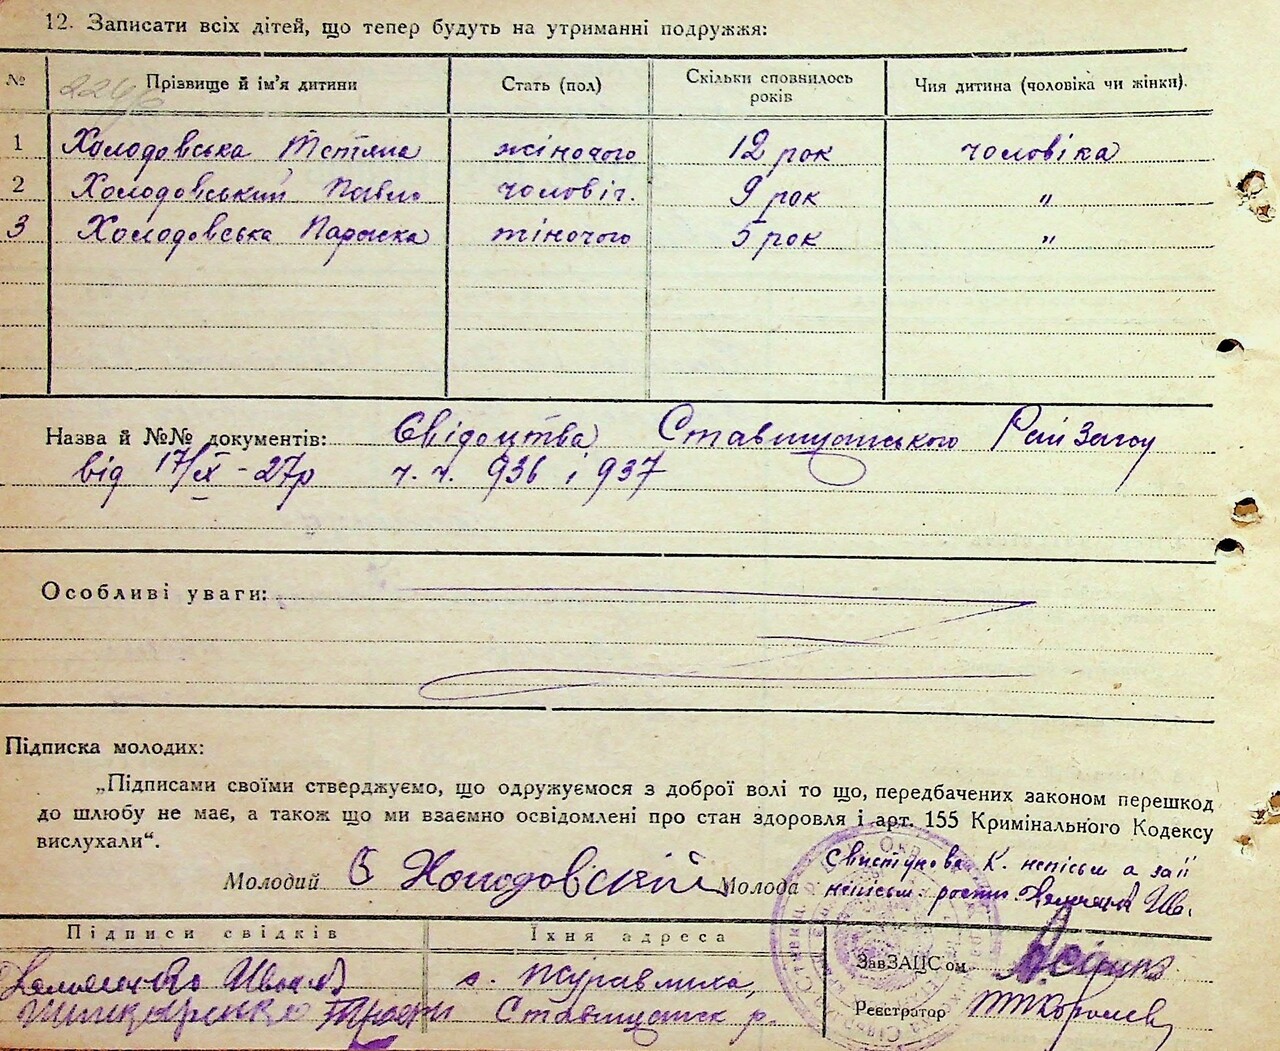 12. Записати всіх дітей, що тепер будуть на утриманні подружжя:
№ Прізвище й ім'я дитини Стать (пол) Скільки сповнилось років Чия дитина (чоловіка чи жінки).
1 Холодовська Тетяна жіночого 12 рок чоловіка
2 Холодовський Павло чоловіч. 9 рок "
3 Холодовська Параска жіночого 5 рок "
Назва й №№ документів: Свідоцтва Ставищанського Рай Загсу
від 17/IX - 27р ч. ч. 936 і 937
Особливі уваги:
Підписка молодих:
„Підписами своїми стверджуємо, що одружуємося з доброї волі то що, передбачених законом перешкод
до шлюбу не має, а також що ми взаємно освідомлені про стан здоровля і арт. 155 Кримінального Кодексу
вислухали“.
Молодий Холодовский Молода Свистунова К. непісьм а за її
непісьм. Ів.
Підписи свідків Їхня адреса
с. Журавлиха,
Ставищанск р.
ЗавЗАЦС'ом
Реєстратор